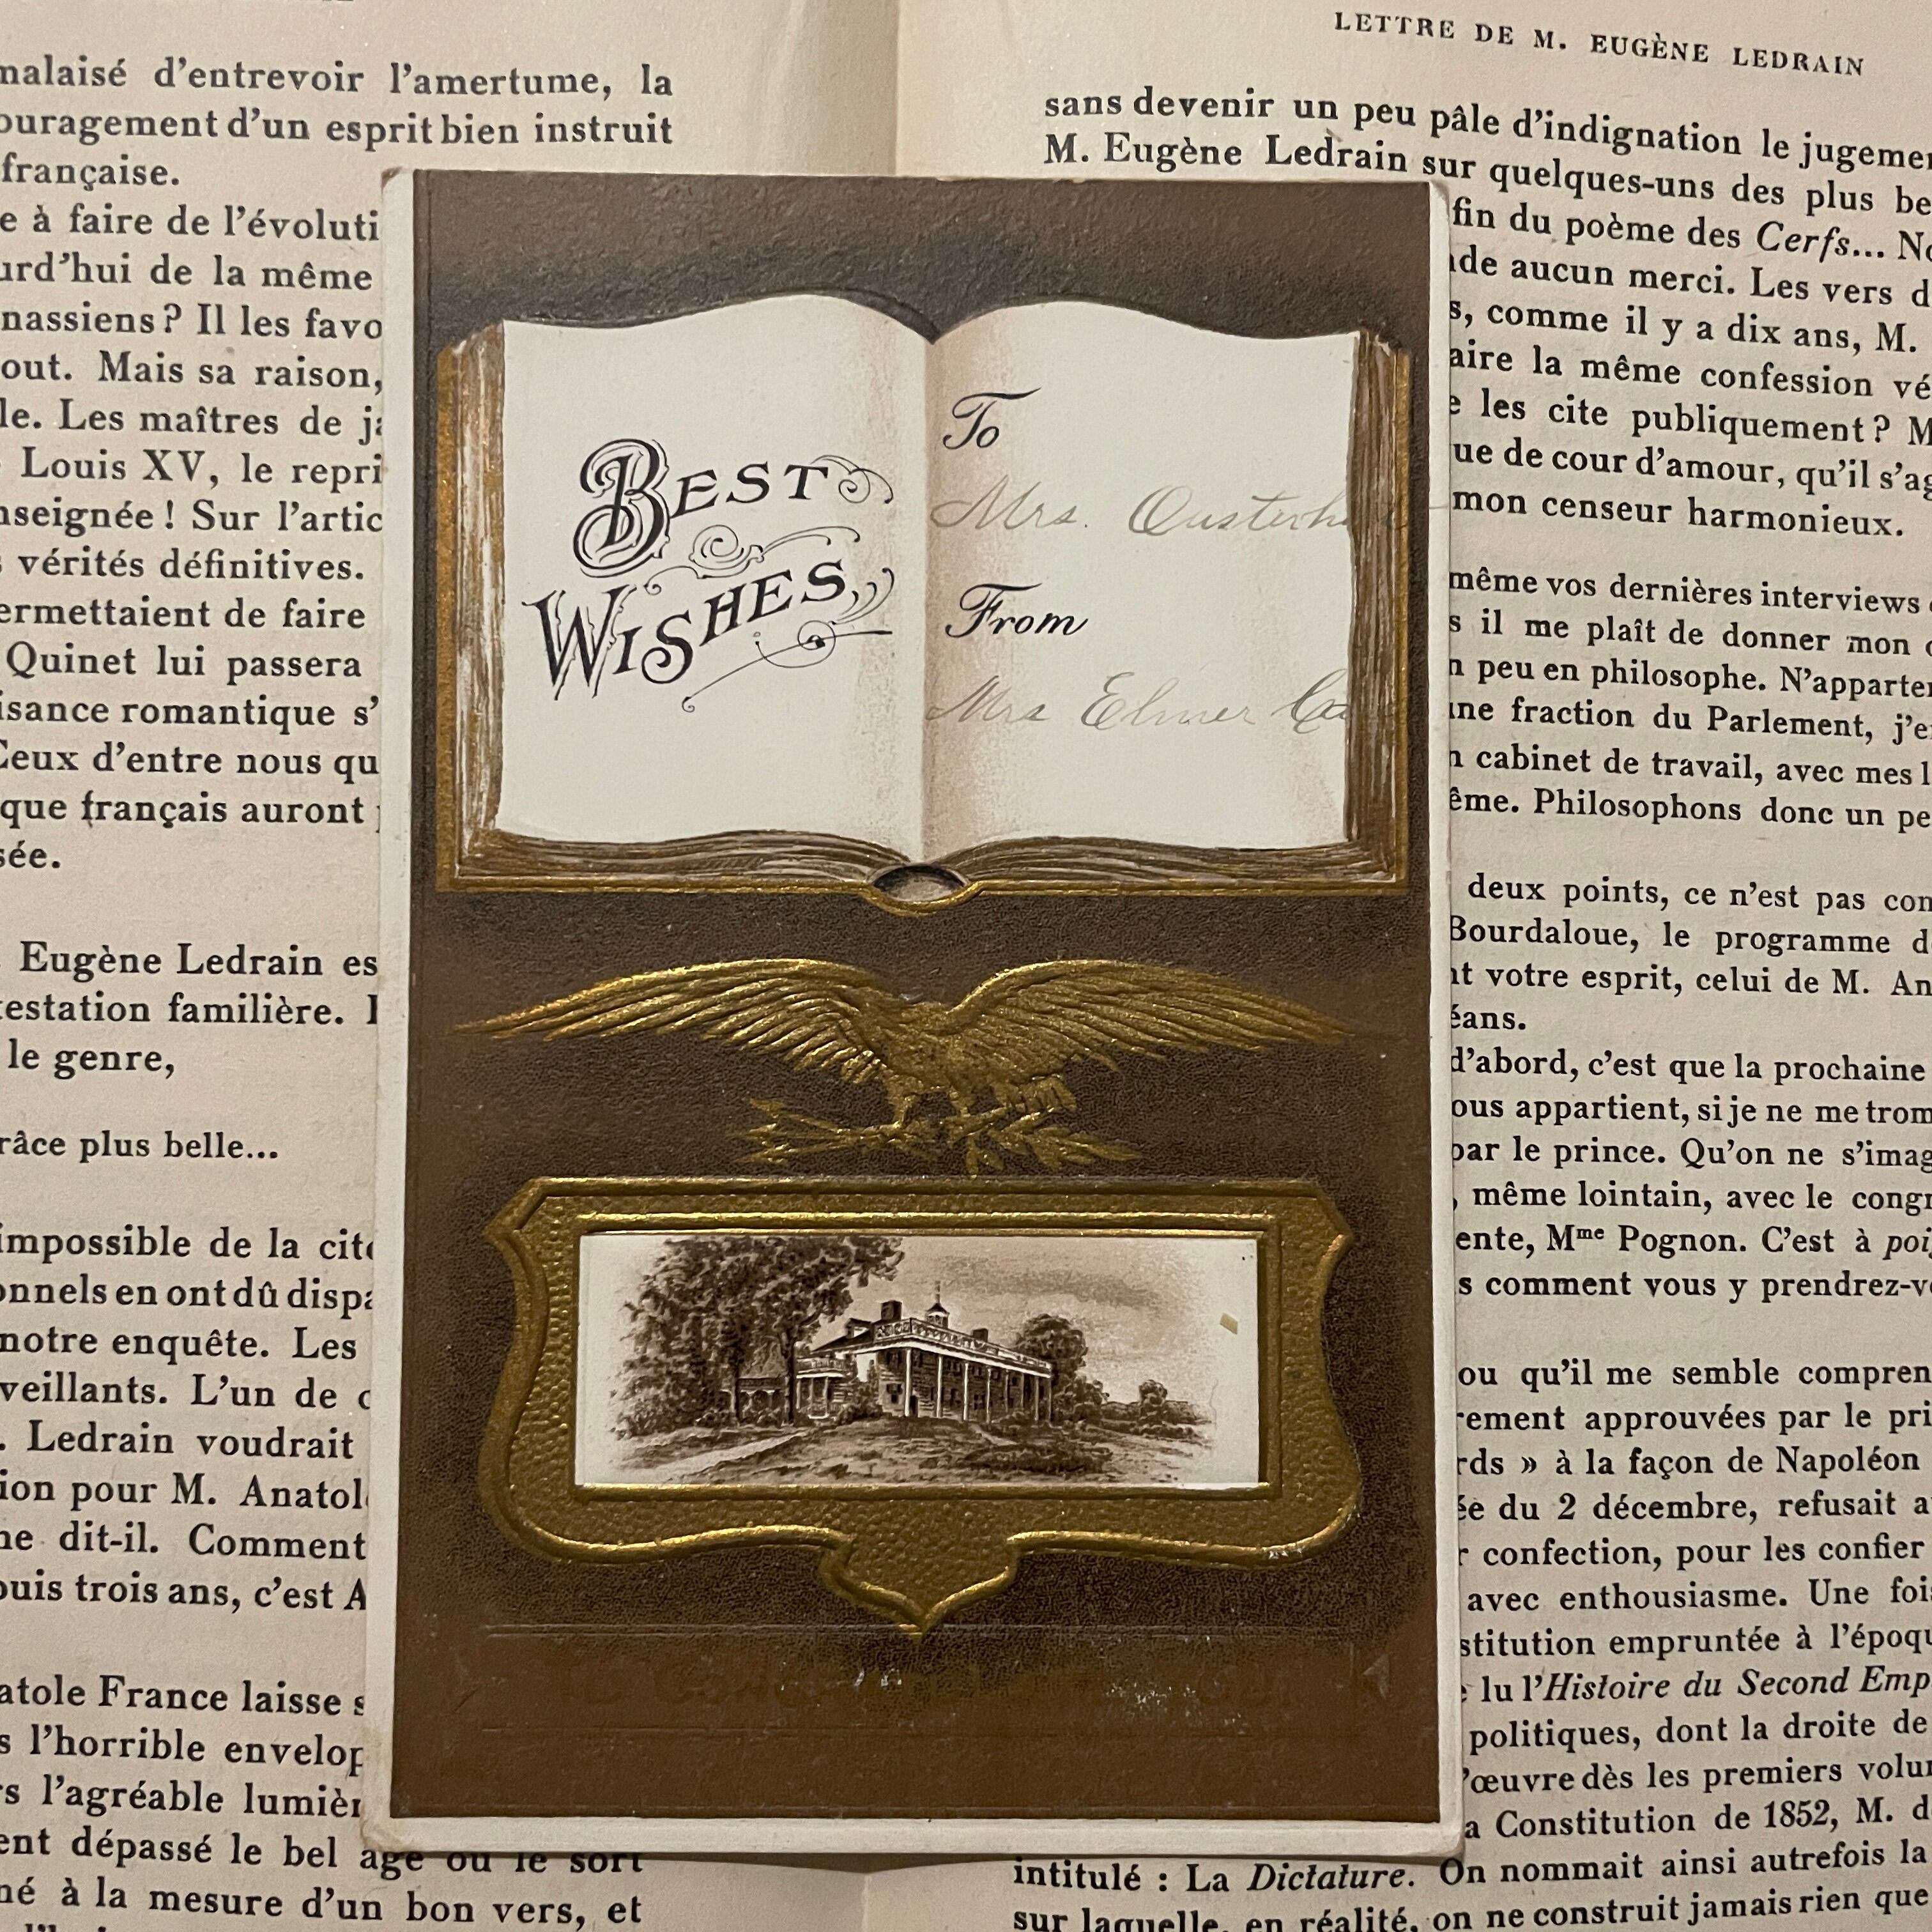 malaisé d'entrevoir l'amertume, la
ouragement d'un esprit bien instruit
française.
e à faire de l'évoluti
urd'hui de la même
nassiens ? Il les favo
out. Mais sa raison,
le. Les maîtres de ja
Louis XV, le repri
nseignée ! Sur l'artic
s vérités définitives.
ermettaient de faire
Quinet lui passera
isance romantique s'
Ceux d'entre nous qu
que français auront
sée.
Eugène Ledrain es
testation familière. I
le genre,
râce plus belle...
impossible de la cité
onnels en ont dû dispa
notre enquête. Les
veillants. L'un de c
. Ledrain voudrait
ion pour M. Anatol
ne dit-il. Comment
puis trois ans, c'est A
atole France laisse s
s l'horrible envelop
rs l'agréable lumièr
ent dépassé le bel âge ou le sort
né à la mesure d'un bon vers, et
BEST
WISHES
To
Mrs.
From
Mrs Elmer
LETTRE DE M. EUGÈNE LEDRAIN
sans devenir un peu pâle d'indignation le jugemen
M. Eugène Ledrain sur quelques-uns des plus be
fin du poème des Cerfs... No
de aucun merci. Les vers d
s, comme il y a dix ans, M.
aire la même confession vé
e les cite publiquement ? M
ue de cour d'amour, qu'il s'ag
mon censeur harmonieux.
même vos dernières interviews
s il me plaît de donner mon
n peu en philosophe. N'apparten
une fraction du Parlement, j'e
n cabinet de travail, avec mes l
ême. Philosophons donc un pe
deux points, ce n'est pas con
Bourdaloue, le programme d
nt votre esprit, celui de M. An
éans.
d'abord, c'est que la prochaine
ous appartient, si je ne me trom
par le prince. Qu'on ne s'imag
, même lointain, avec le congr
ente, Mme Pognon. C'est à poi
s comment vous y prendrez-v
ou qu'il me semble compren
rement approuvées par le pri
rds » à la façon de Napoléon
ée du 2 décembre, refusait a
r confection, pour les confier
avec enthousiasme. Une fois
stitution empruntée à l'époqu
lu l'Histoire du Second Emp
politiques, dont la droite de
'œuvre dès les premiers volu
a Constitution de 1852, M. d
intitulé : La Dictature. On nommait ainsi autrefois la
sur laquelle, en réalité, on ne construit jamais rien que